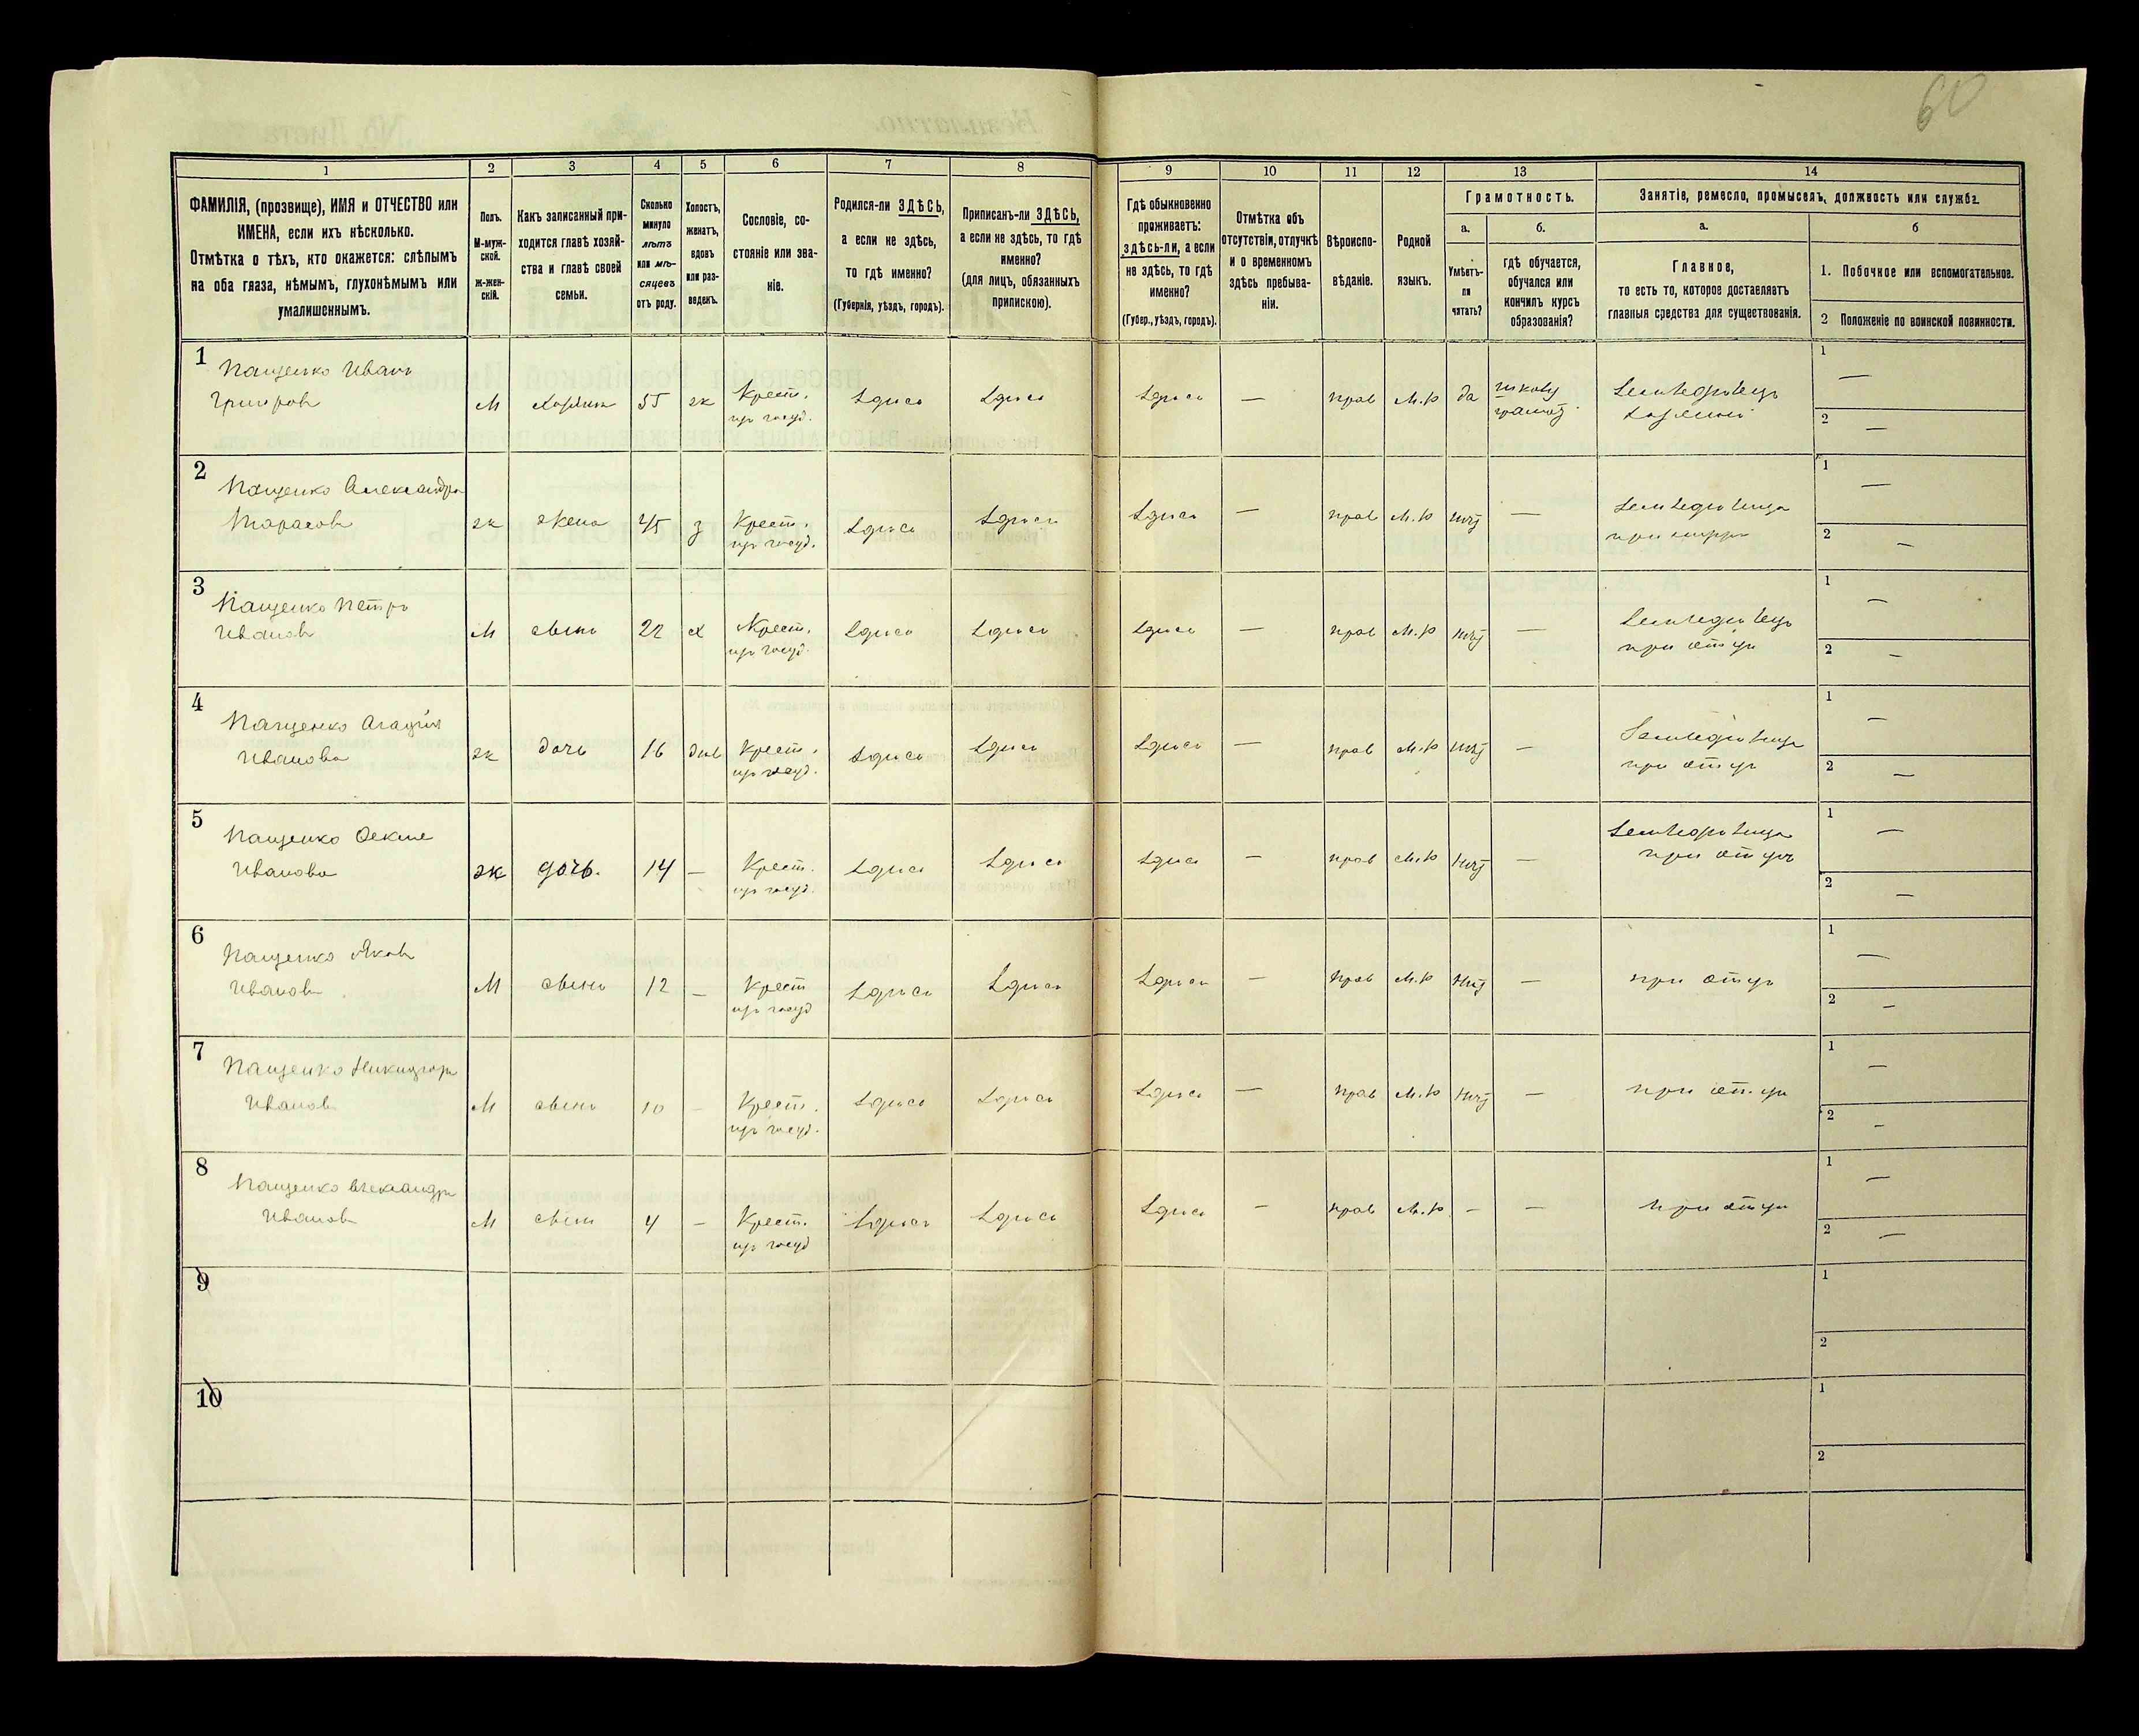 60
1 2 3 4 5 6 7 8 9 10 11 12 13 14
ФАМИЛІЯ, (прозвище), ИМЯ и ОТЧЕСТВО или
ИМЕНА, если ихъ нѣсколько.
Отмѣтка о тѣхъ, кто окажется: слѣпымъ
на оба глаза, нѣмымъ, глухонѣмымъ или
умалишеннымъ.
Полъ.
М-муж-
ской.
ж-жен-
скій.
Какъ записанный при-
ходится главѣ хозяй-
ства и главѣ своей
семьи.
Сколько
минуло
лѣтъ
или мѣ-
сяцевъ
отъ роду.
Холостъ,
женатъ,
вдовъ
или раз-
веденъ.
Сословіе, со-
стояніе или зва-
ніе.
Родился-ли ЗДѢСЬ,
а если не здѣсь,
то гдѣ именно?
(Губернія, уѣздъ, городъ).
Приписанъ-ли ЗДѢСЬ,
а если не здѣсь, то гдѣ
именно?
(для лицъ, обязанныхъ
припискою).
Гдѣ обыкновенно
проживаетъ:
здѣсь-ли, а если
не здѣсь, то гдѣ
именно?
(Губер., уѣздъ, городъ).
Отмѣтка объ
отсутствіи, отлучкѣ
и о временномъ
здѣсь пребыва-
ніи.
Вѣроиспо-
вѣданіе.
Родной
языкъ.
Грамотность.
а.
Умѣетъ-
ли
читать?
б.
гдѣ обучается,
обучался или
кончилъ курсъ
образованія?
Занятіе, ремесло, промыселъ, должность или служба.
а.
Главное,
то есть то, которое доставляетъ
главныя средства для существованія.
б
1. Побочное или вспомогательное.
2 Положеніе по воинской повинности.
1 Пащенко Иванъ
М Хозяинъ 55 ж Крест. Здѣсь Здѣсь Здѣсь — прав М.р да Земледѣлецъ 1 —
из госуд. хозяинъ 2 —
2 Пащенко Александра
Тарасов ж жена 45 з Крест. Здѣсь Здѣсь Здѣсь — прав М.р нѣт — 1 —
из госуд. 2 —
3 Пащенко Петръ
Иванов М сынъ 22 х Крест. Здѣсь Здѣсь Здѣсь — прав М.р нѣт — Земледѣлецъ 1 —
из госуд. при отцѣ 2 —
4 Пащенко
Иванова ж дочь 16 дѣв Крест. Здѣсь Здѣсь Здѣсь — прав М.р нѣт — 1 —
из госуд. при отцѣ 2 —
5 Пащенко
Иванова ж дочь. 14 — Крест. Здѣсь Здѣсь Здѣсь — прав М.р нѣт — 1 —
из госуд. при отцѣ 2 —
6 Пащенко Яков
Иванов М сынъ 12 — Крест Здѣсь Здѣсь Здѣсь — прав М.р нѣт — при отцѣ 1 —
из госуд 2 —
7 Пащенко Никифоръ
Иванов М сынъ 10 — Крест. Здѣсь Здѣсь Здѣсь — прав М.р нѣт — при отцѣ 1 —
из госуд. 2 —
8 Пащенко Александръ
Иванов М сынъ 4 — Крест. Здѣсь Здѣсь Здѣсь — прав М.р — — при отцѣ 1 —
из госуд 2 —
9 1
2
10 1
2